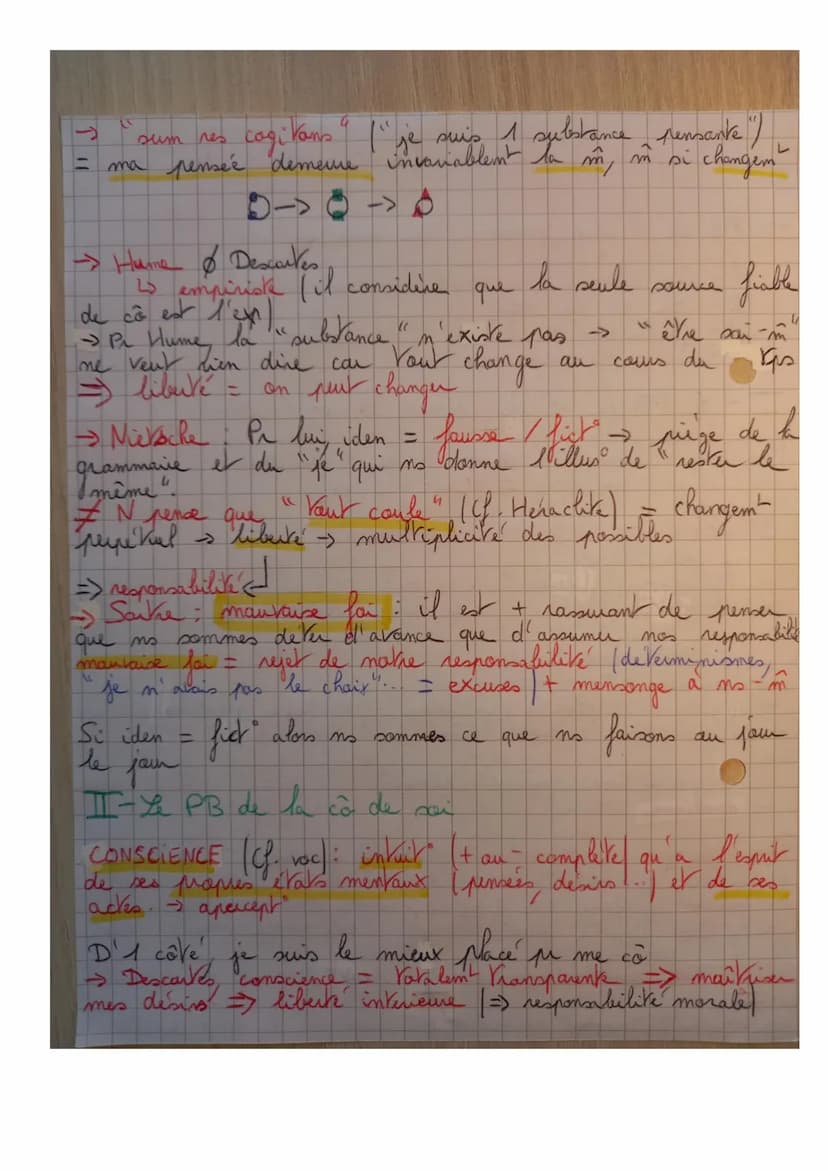 → "sum res cogitans" ("je suis 1 substance pensante")
= ma pensée demeure invariablemt la m̂, m̂ si changemt
→ Hume ∅ Descartes
↳ empiriste (il considère que la seule source fiable
de cô est l'exp)
→ Pr Hume, la "substance" n'existe pas → "être soi-m̂"
ne veut rien dire car tout change au cours du tps
⇒ liberté = on peut changer
→ Nietzsche : Pr lui, iden = fausse / fict° → piège de la
grammaire et du "je" qui ns donne l'illus° de "rester le
même".
≠ N pense que "tout coule" (Cf. Héraclite) = changemt
perpétuel → liberté → multiplicité des possibles
⇒ responsabilité ↲
→ Sartre : mauvaise foi : il est + rassurant de penser
que ns sommes déter d'avance que d'assumer nos responsabilité
mauvaise foi = rejet de notre responsabilité (déterminismes,
"je n'avais pas le choix"... = excuses) + mensonge à ns-m̂
Si iden = fict° alors ns sommes ce que ns faisons au jour
le jour
II - Le PB de la cô de soi
CONSCIENCE (Cf. voc) : intuit° (+ ou - complète) qu'a l'esprit
de ses propres états mentaux (pensées, désirs...) et de ses
actes. → apercept°
D'1 côté, je suis le mieux placé pr me cô
→ Descartes, conscience = totalemt transparente ⇒ maîtriser
mes désirs ⇒ liberté intérieure (⇒ responsabilité morale)